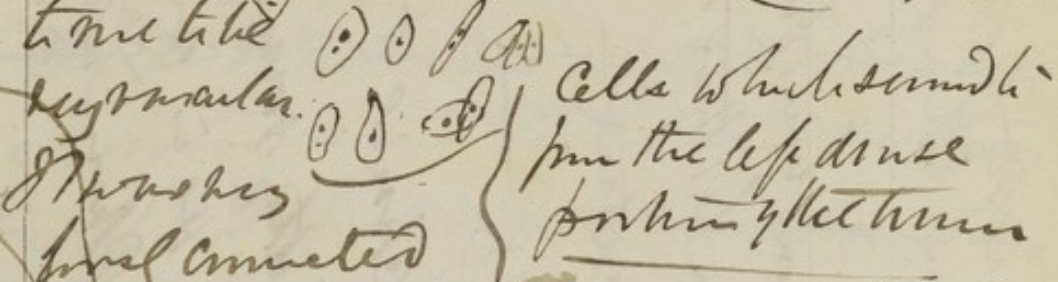 to me to be
very vascular.
It was very
firmly connected
Cells which seemed to
form the less dense
portion of the tumour